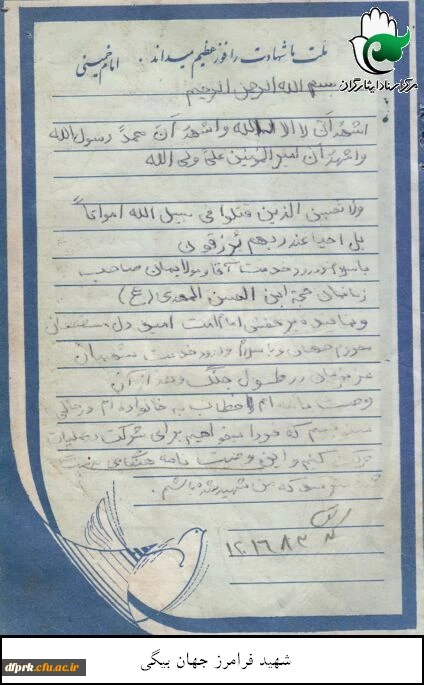 ملت ما شهادت را فوز عظیم میداند. امام خمینی
مرکز اسناد ایثارگران
بسم الله الرحمن الرحیم
اشهد ان لا اله الا الله واشهد ان محمدً رسول الله
واشهد ان امیرالمومنین علی ولی الله
ولا تحسبن الذین قتلوا فی سبیل الله امواتاً
بل احیا عند ربهم یرزقون
با سلام و درود خدمت آقا و مولایمان صاحب
زمانمان حجة ابن الحسن المهدی (عج)
و نماینده بر حقش امام امت امید دل مستضعفان
محروم جهان و با سلام و درود خدمت شهیدان
عزیزمان در طول جنگ و بعد از آن
وصیت نامه ام را خطاب به خانواده ام در حالی
مینویسم که فردا میخواهیم برای شرکت در عملیات
حرکت کنیم و این وصیت نامه هنگامی بدست
شما میرسد که من شهید شده باشم.
شهید فرامرز جهان بیگی
dfprk.cfu.ac.ir